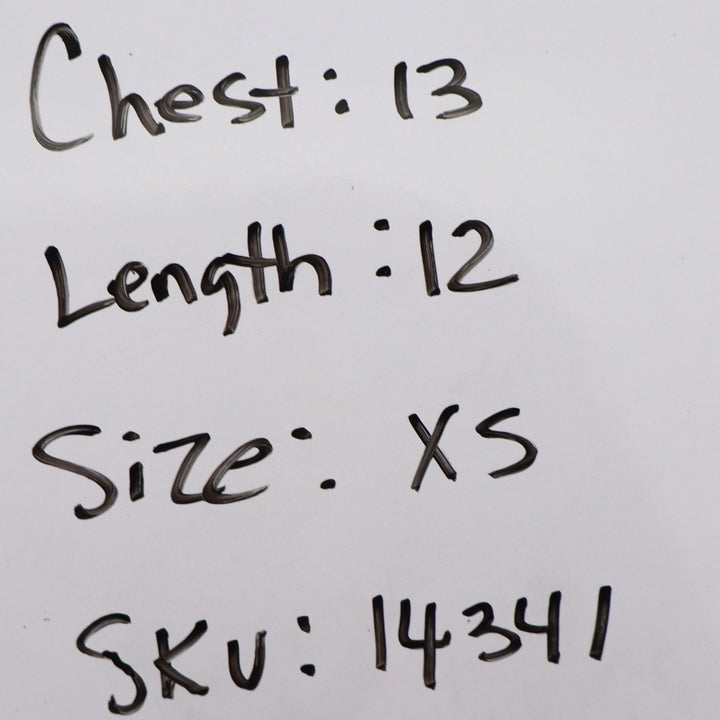 Chest: 13
Length: 12
Size: XS
SKU: 14341